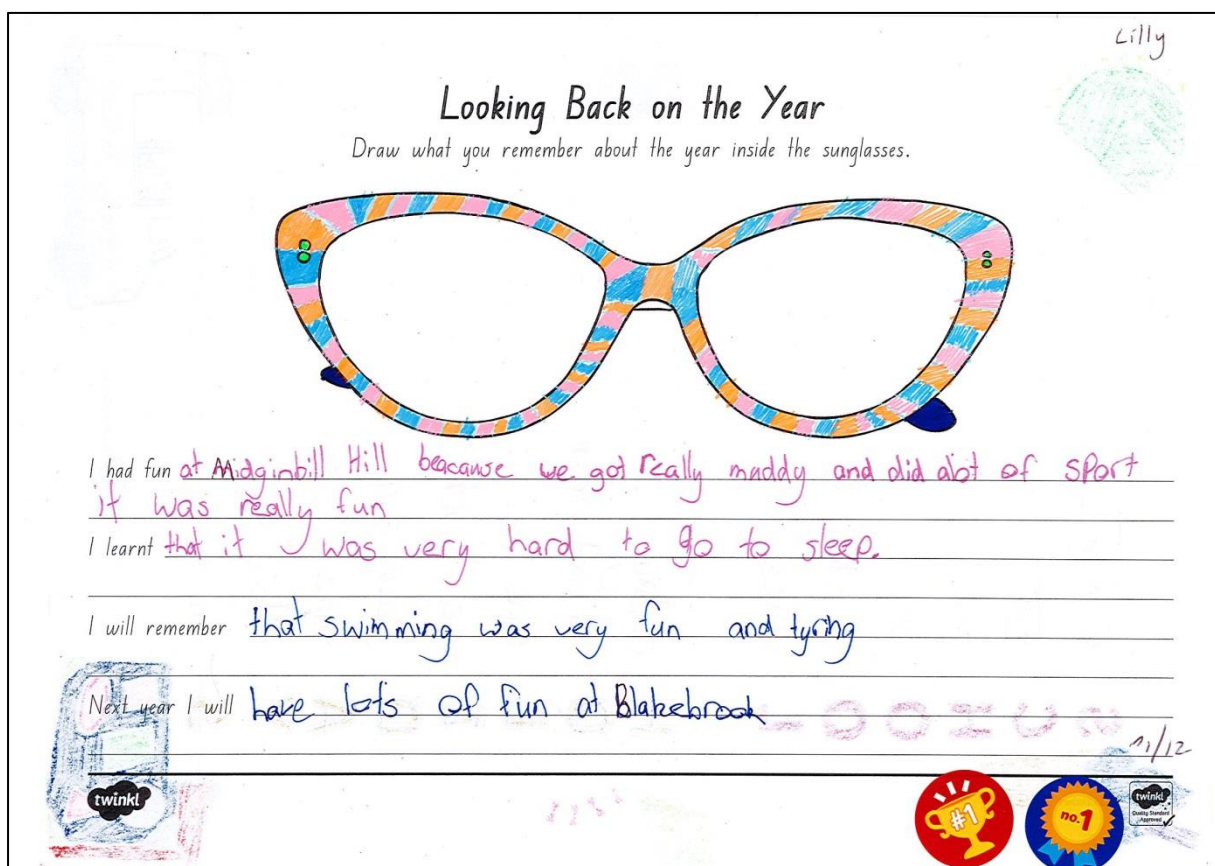 Lilly
Looking Back on the Year
Draw what you remember about the year inside the sunglasses.
I had fun at Midginbill Hill beacause we got really muddy and did alot of sport
it was really fun
I learnt that it was very hard to go to sleep.
I will remember that swimming was very fun and tyring
Next year I will have lots of fun at Blakebrook
11/12
twinkl
#1
no.1
twinkl
Quality Standard
Approved